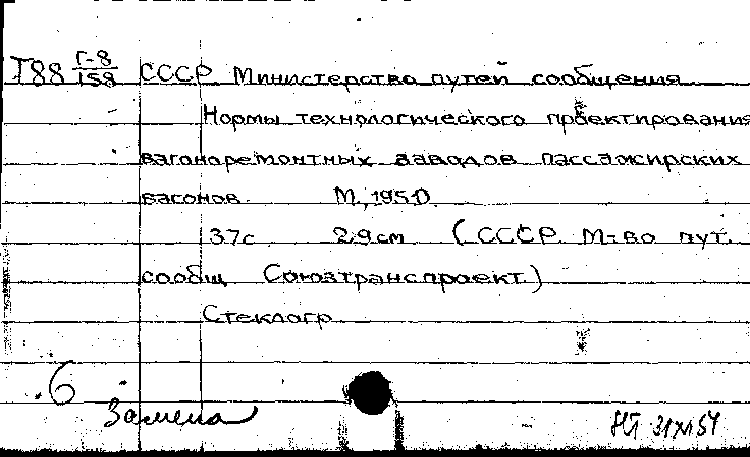 Т88 Г-8/158 СССР Министерство путей сообщения
Нормы технологического проектирования
вагоноремонтных заводов пассажирских
вагонов. М., 1950.
37с 29см (СССР. М-во пут.
сообщ Союзтранспроект.)
Стеклогр.
6
Замена